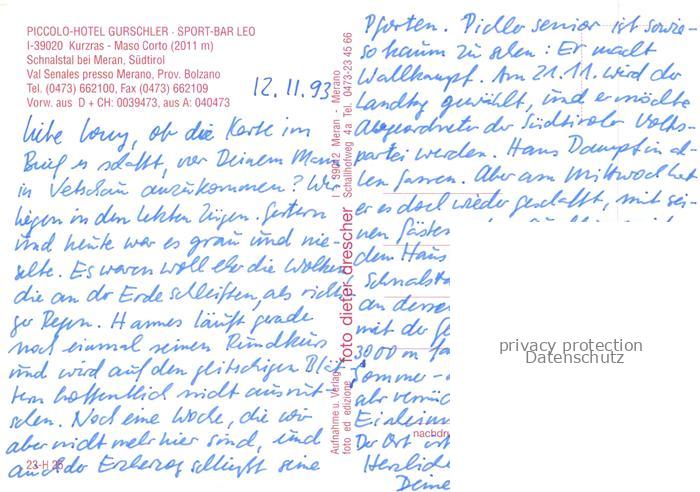 PICCOLO-HOTEL GURSCHLER · SPORT-BAR LEO
I-39020 Kurzras - Maso Corto (2011 m)
Schnalstal bei Meran, Südtirol
Val Senales presso Merano, Prov. Bolzano
Tel. (0473) 662100, Fax (0473) 662109
Vorw. aus D + CH: 0039473, aus A: 040473
12.11.93
Liebe Romy, ob die Karte im
Brief es schafft, vor Deinem Mann
in Vetschau anzukommen? Wir
liegen in den letzten Zügen. Gestern
und heute war es grau und nie-
selte. Es waren wohl eher die Wolken,
die an der Erde schleiften, als richti-
ger Regen. Hannes läuft gerade
noch einmal seinen Rundkurs
und wird auf den glitschigen Blät-
tern hoffentlich nicht ausrut-
schen. Noch eine Woche, die wir
aber nicht mehr hier sind, und
auch der Erzherzog schließt seine
23-H 25
Aufnahme u. Verlag
foto ed edizione
foto dieter drescher
I - 39012 Meran - Merano
Schallhofweg 4a Tel. 0473-23 45 66
Pforten. Pichler senior ist sowie-
so kaum zu sehen: Er macht
Wahlkampf. Am 21.11. wird der
Landtag gewählt, und er möchte
Abgeordneter der Südtiroler Volks-
partei werden. Hans Dampf in al-
len Gassen. Aber am Mittwoch hat
er es doch wieder geschafft, mit sei-
nen Gästen
dem Haus
Schnalsta
an dessen
mit der
3000 m
Sommer-
Der Ort
nachdr
Herzliche
Deine
privacy protection
Datenschutz